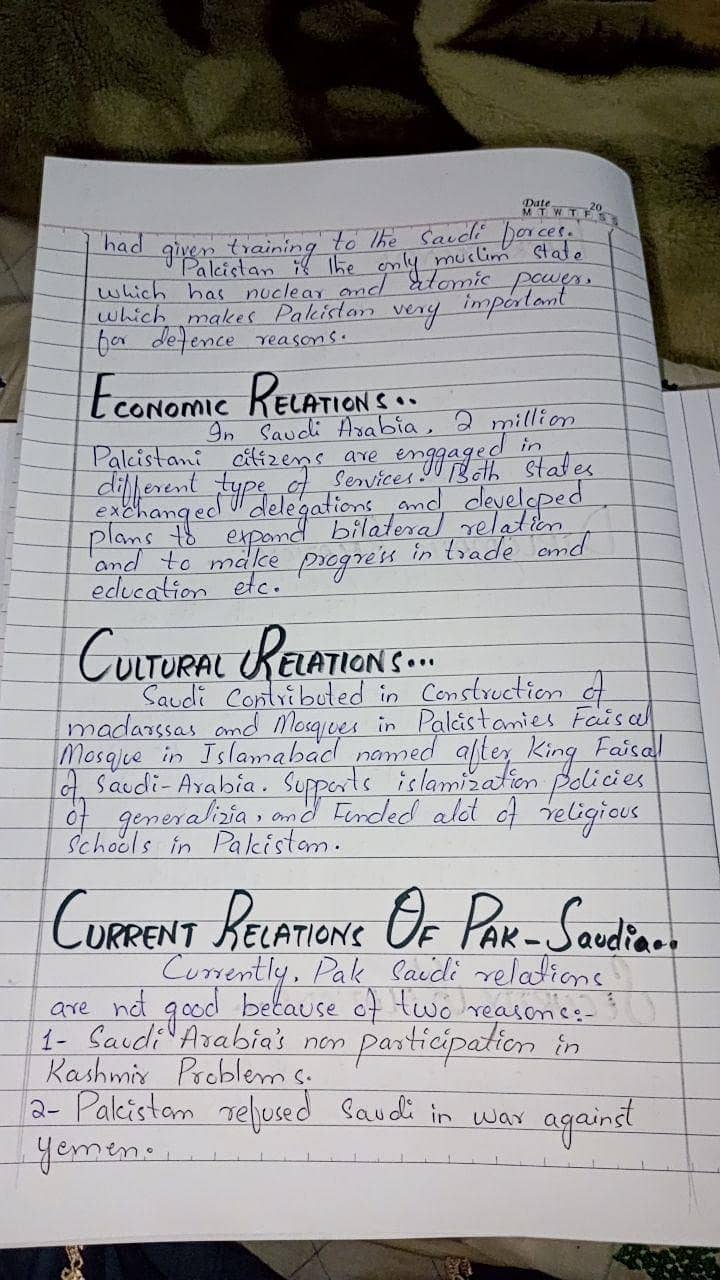 Date 20
M T W T F S S
had given training to the Saudi forces.
Pakistan is the only muslim state
which has nuclear and atomic power,
which makes Pakistan very important
for defence reasons.
ECONOMIC RELATIONS..
In Saudi Arabia, 2 million
Pakistani citizens are enggaged in
different type of Services. Both States
exchanged delegations and developed
plans to expand bilateral relation
and to make progress in trade and
education etc.
CULTURAL RELATIONS...
Saudi Contributed in Construction of
madarssas and Mosques in Pakistanies Faisal
Mosque in Islamabad named after King Faisal
of Saudi-Arabia. Supports islamization policies
of generalizia, and Funded alot of religious
Schools in Pakistan.
CURRENT RELATIONS OF PAK-Saudia..
Currently, Pak Saudi relations
are not good because of two reasons:-
1- Saudi Arabia's non participation in
Kashmir Problems.
2- Pakistan refused Saudi in war against
yemen.